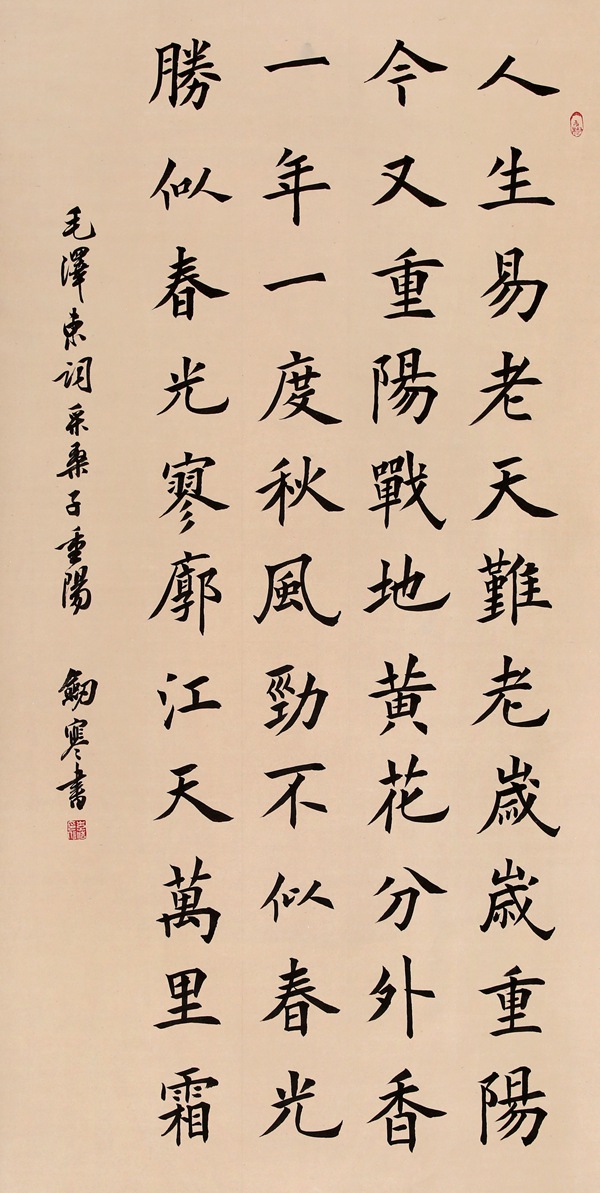 人生易老天難老歲歲重陽
今又重陽戰地黃花分外香
一年一度秋風勁不似春光
勝似春光寥廓江天萬里霜
毛澤东词采桑子重陽 劒寒書